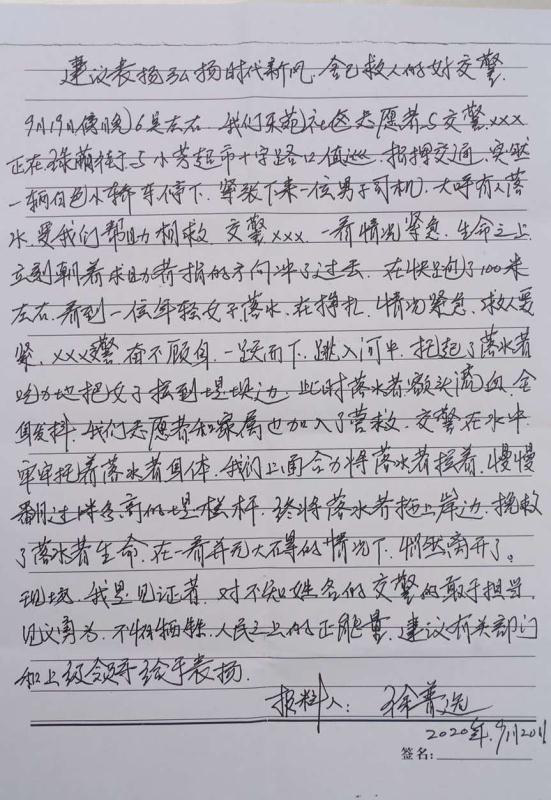 建议表扬弘扬时代新风,舍己救人的好交警.
9月19日傍晚6点左右,我们东苑社区志愿者与交警xxx
正在绿荫街与小芳超市十字路口值巡,指挥交通,突然
一辆白色小轿车停下,紧张下来一位男子司机,大呼有人落
水,要我们帮助相救.交警xxx.一看情况紧急,生命之上
立刻朝着求助者指的方向冲了过去.在快跑了100米
左右.看到一位年轻女子落水,在挣扎,情况紧急,救人要
紧,xxx警,奋不顾身,一跃而下,跳入河中,托起了落水者
吃力地把女子接到堤坝边,此时落水者额头流血,全
身发抖,我们志愿者和家属也加入了营救.交警在水中
牢牢托着落水者身体.我们上面合力将落水者拉着,慢慢
翻过 高的堤栏杆.终将落水者拖上岸边,挽救
了落水者生命.在一看并无大碍的情况下,悄然离开了。
现场,我是见证者.对不知姓名的交警的敢于担当,
见义勇为,不怕牺牲.人民之上的正能量.建议有关部门
和上级领导给予表扬.
报料人: 徐普选
2020年.9月20日
签名: